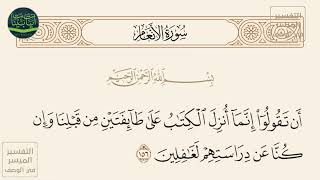 سُورَةُ الأَنْعَامِ
التفسير
الميسر
بِسْمِ اللَّهِ الرَّحْمَٰنِ الرَّحِيمِ
أَن تَقُولُوٓا۟ إِنَّمَآ أُنزِلَ ٱلْكِتَٰبُ عَلَىٰ طَآئِفَتَيْنِ مِن قَبْلِنَا وَإِن
كُنَّا عَن دِرَاسَتِهِمْ لَغَٰفِلِينَ ١٥٦
التفسير
الميسر
في الوصف